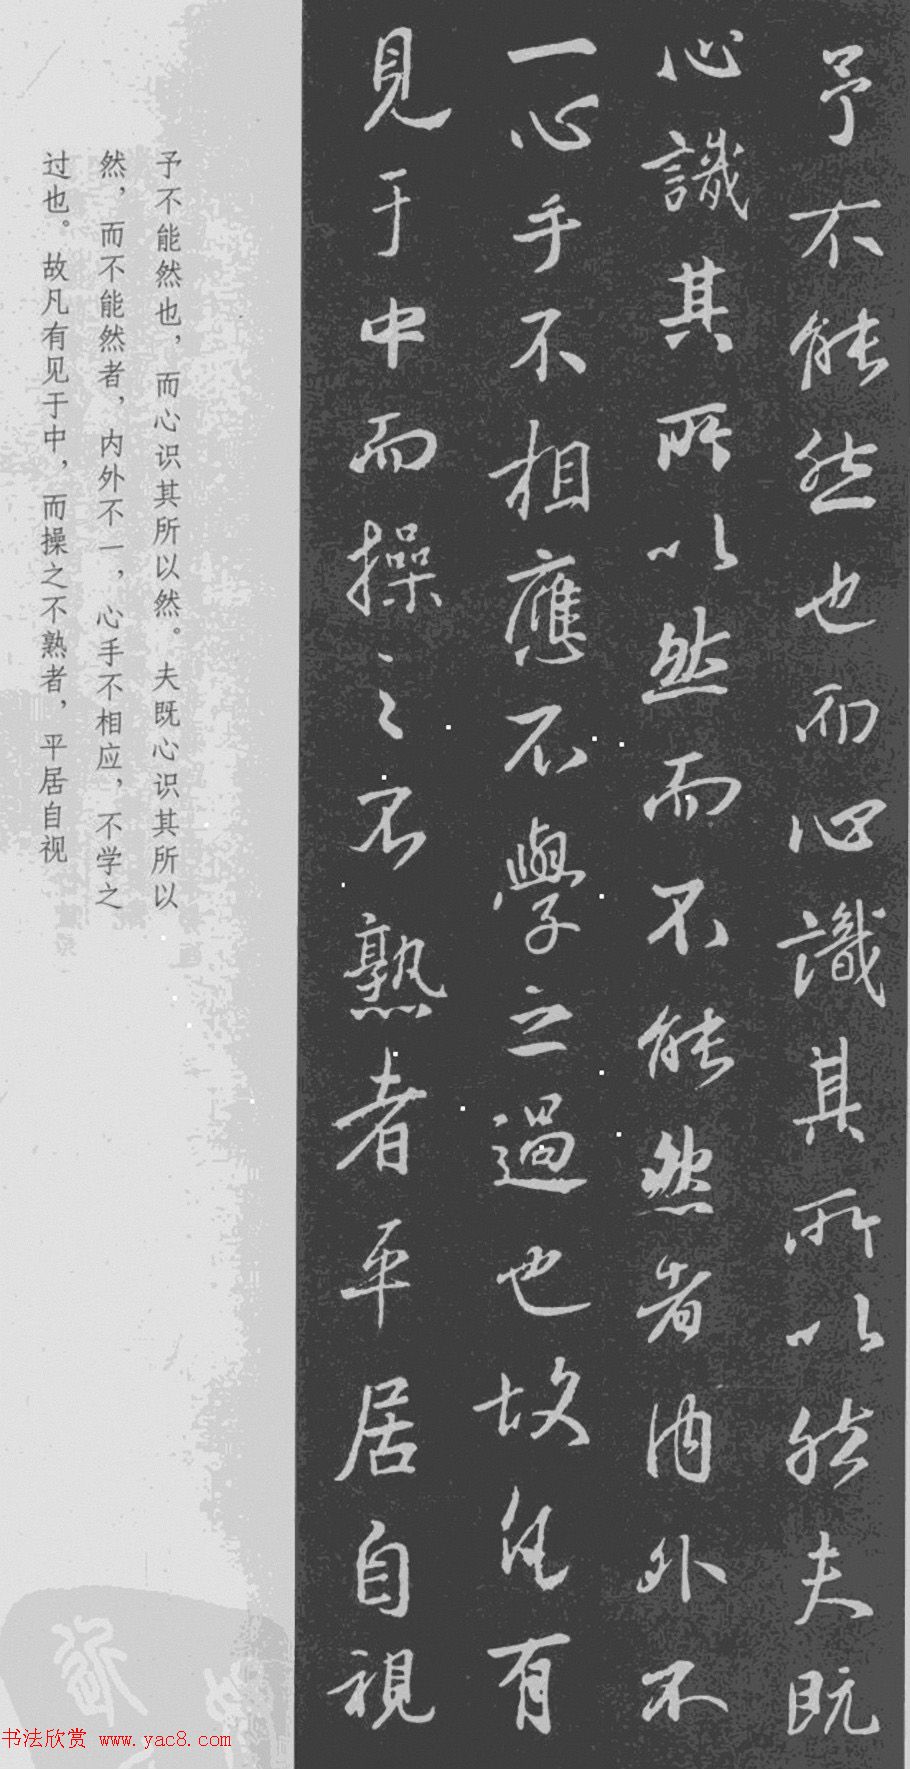 予不能然也而心識其所以然夫既
心識其所以然而不能然者内外不
一心手不相應不學之過也故凡有
見于中而操之不熟者平居自視
予不能然也，而心识其所以然。夫既心识其所以
然，而不能然者，内外不一，心手不相应，不学之
过也。故凡有见于中，而操之不熟者，平居自视
书法欣赏 www.yac8.com